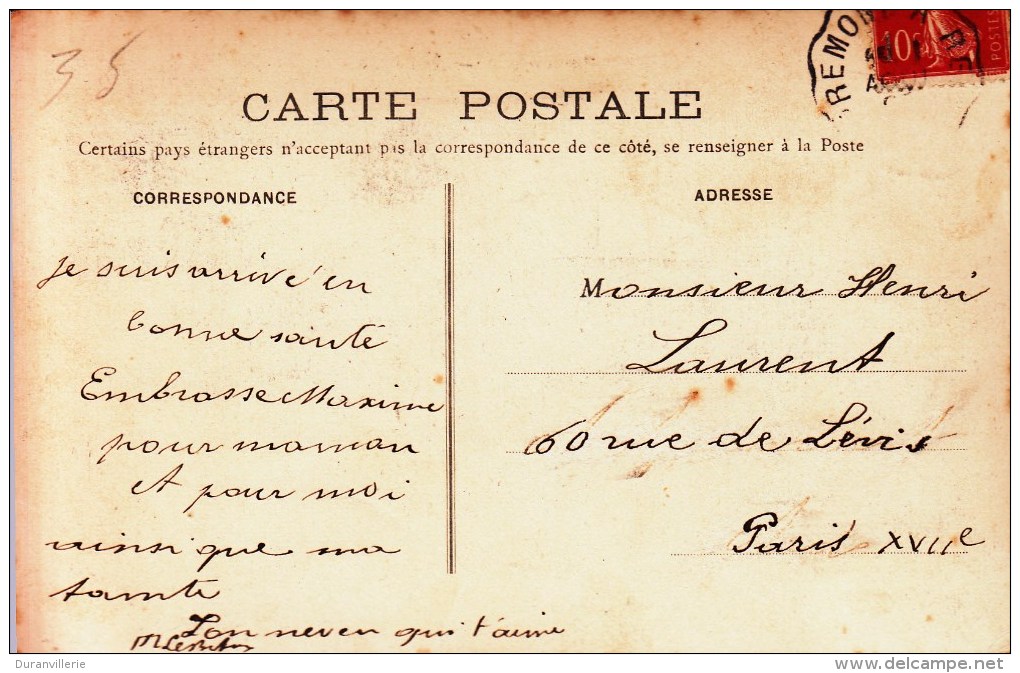 35
BREMON
10c
POSTES
CARTE POSTALE
Certains pays étrangers n'acceptant pas la correspondance de ce côté, se renseigner à la Poste
CORRESPONDANCE
je suis arrivé en
bonne santé
Embrasse Maxime
pour maman
et pour moi
ainsi que ma
tante
Ton neveu qui t'aime
ADRESSE
Monsieur Henri
Laurent
60 rue de Lévis
Paris XVIIe
Duranvillerie
www.delcampe.net